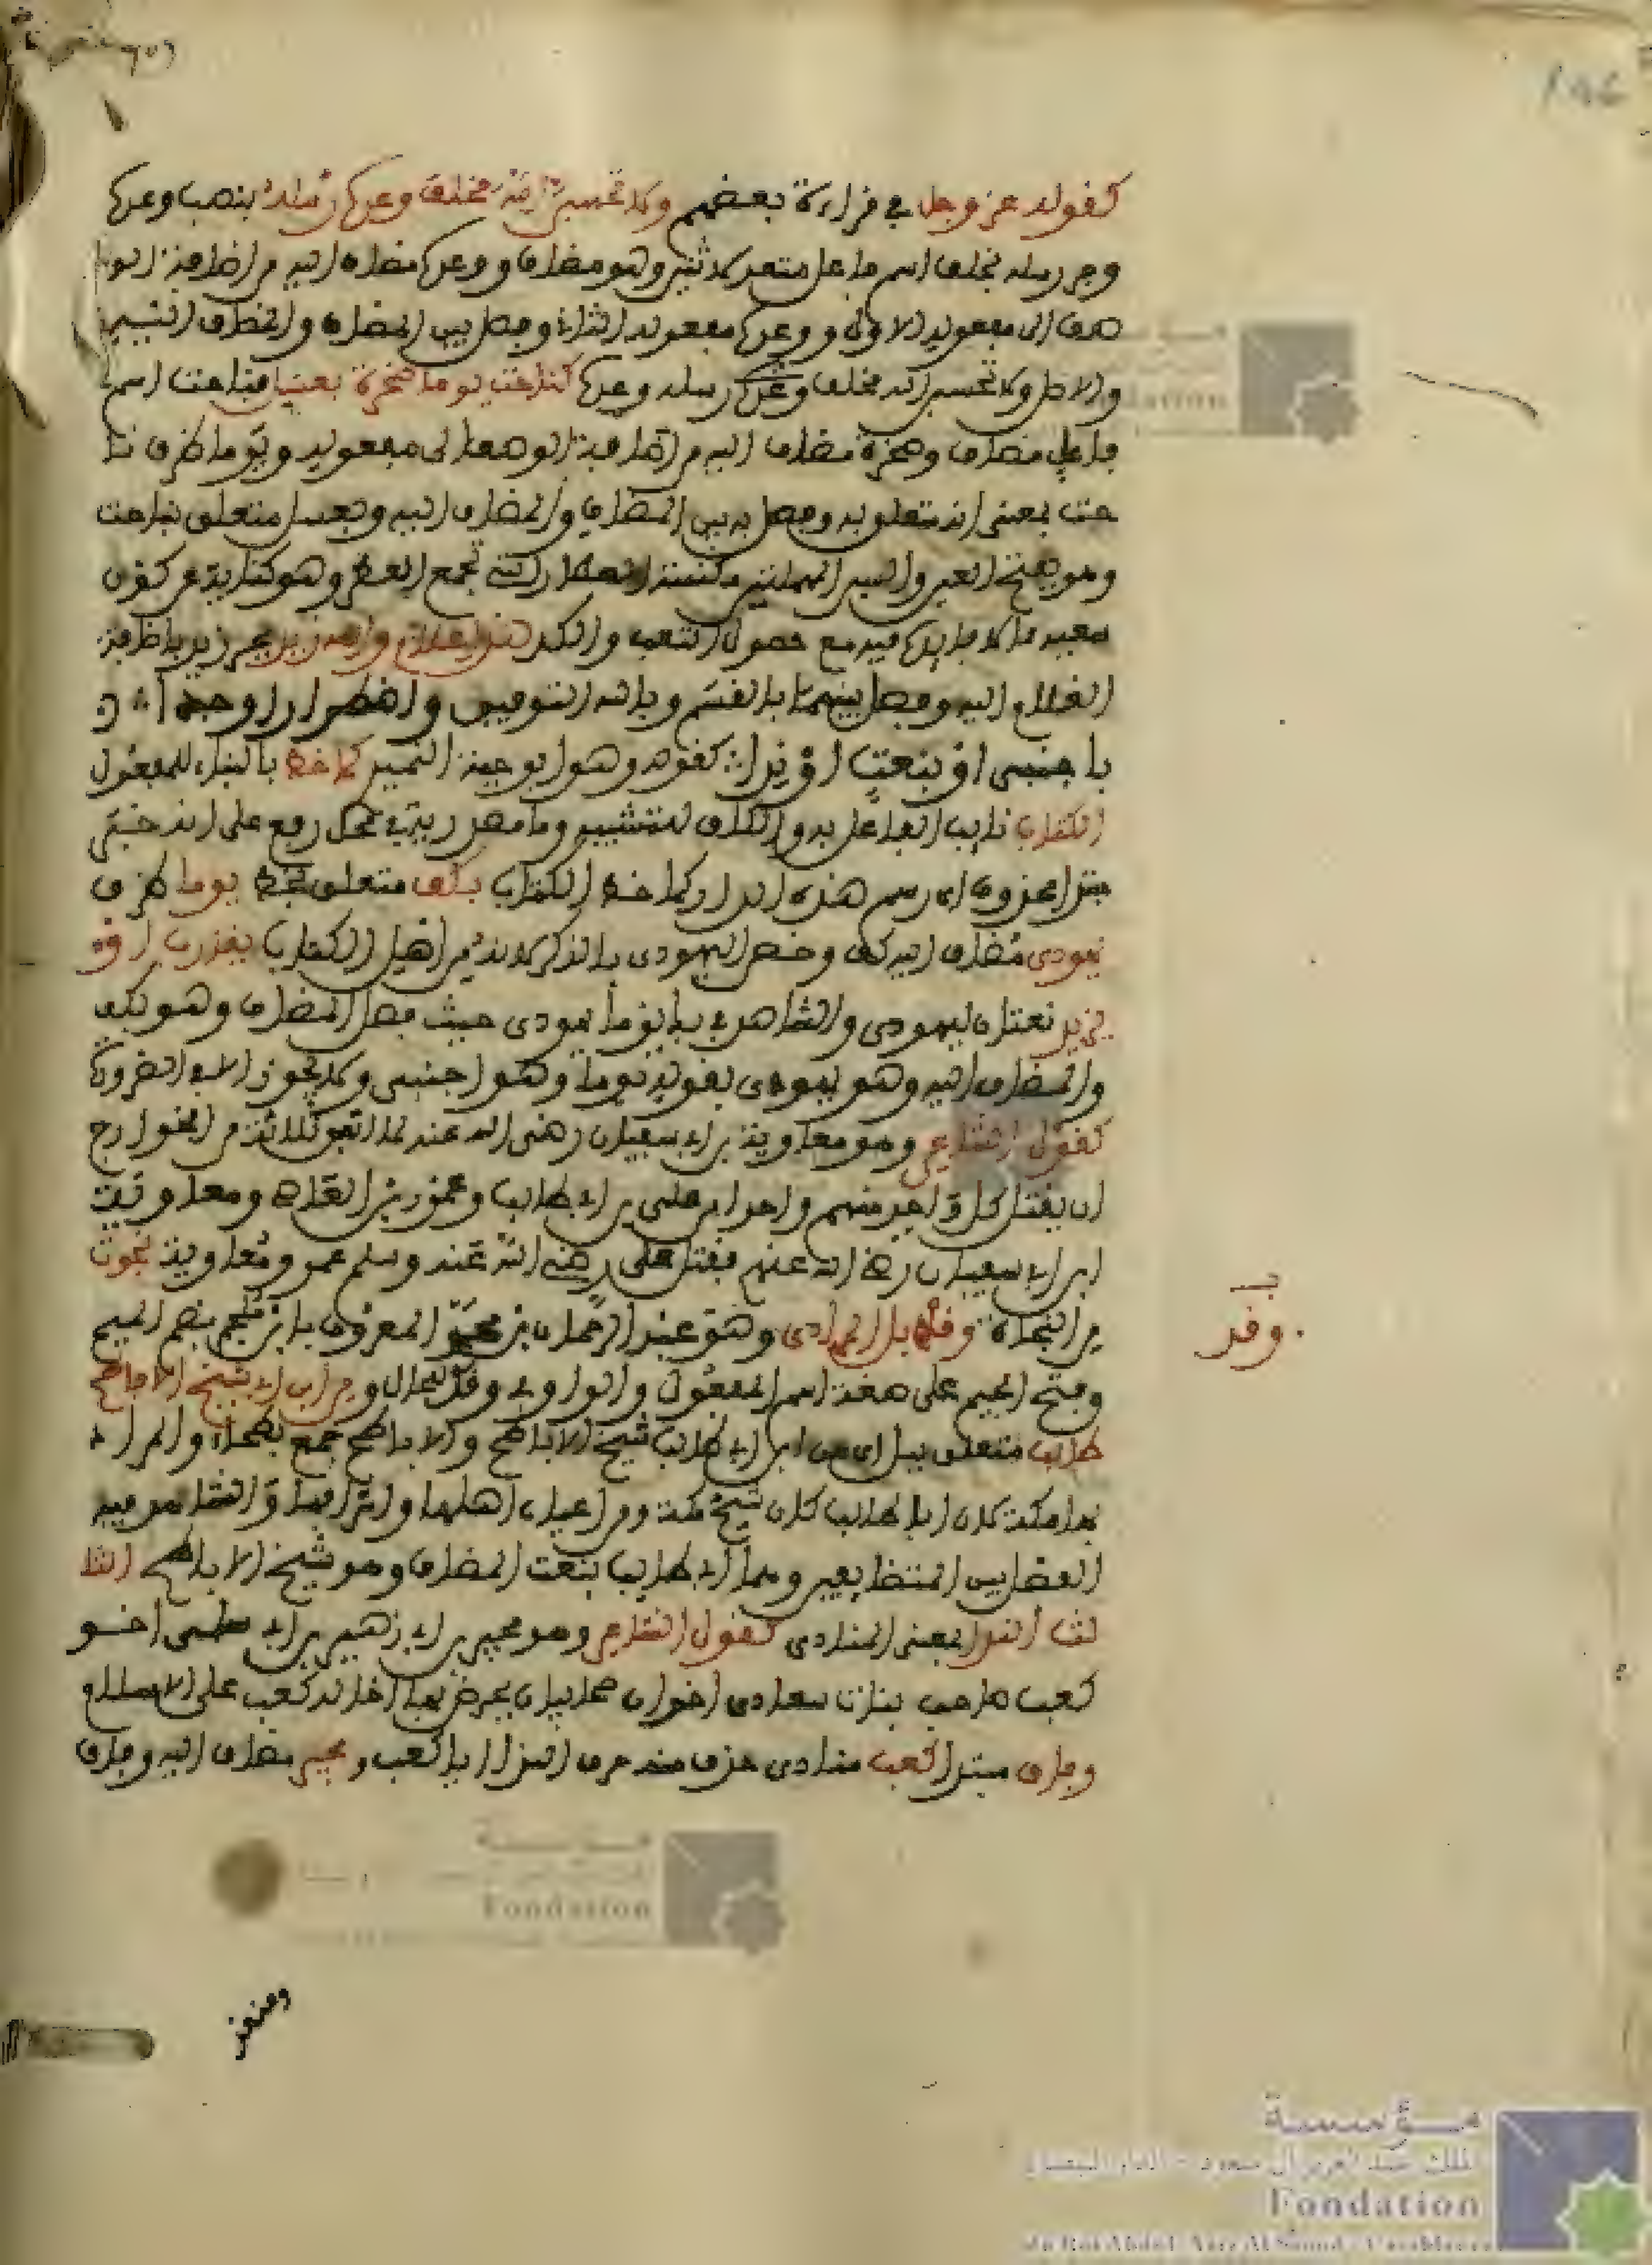 كقوله عز وجل في قراءة بعضهم ولا تحسبن الله مخلف وعده رسله بنصب وعده
وجر رسله فمخلف اسم فاعل متعد لاثنين وهو مضاف ووعده مضاف إليه من إضافة الو
صف إلى مفعوله الأول ووعده مفعوله الثاني وفصل بين المضاف والمضاف إليه
والأصل ولا تحسبن الله مخلف وعده رسله وعده كناحت يوما صخرة بعسيل فناحت اسم
فاعل مضاف وصخرة مضاف إليه من إضافة الوصف إلى مفعوله ويوما ظرف نا
حت بمعنى أنه متعلق به وفصل به بين المضاف والمضاف إليه وبعسيل متعلق بناحت
وهو بفتح العين والسين المهملتين مكنسة العطار التي تجمع العطر وهو كناية عن كون
سعيه مما لا فايدة فيه مع حصول التعب والكد هذا غلام والله زيد بجر زيد بإضافة
الغلام إليه وفصل بينهما بالقسم وبالله التوفيق واضطرارا وجدا
بأجنبي أو بنعت أو ندا كقوله وهو أبو حية النميري كما خط بالبناء للمفعول
الكتاب نايب الفاعل به والكاف للتشبيه وما مصدرية في محل رفع على أنه خبر
مبتدأ محذوف أي رسم هذه الدار كما خط الكتاب بكف متعلق بخط يوما ظرف
يهودي مضاف إليه كف وخص اليهودي بالذكر لأنه من أهل الكتاب يقارب أو
يزيل نعتان ليهودي والشاهد في يوما يهودي حيث فصل المضاف وهو بكف
والمضاف إليه وهو يهودي بقوله يوما وهو أجنبي ولا يجوز إلا في الضرورة
كقول الشاعر وهو معاوية بن أبي سفيان رضي الله عنه لما اتفق ثلاثة من الخوارج
أن يقتل كل واحد منهم واحدا من علي بن أبي طالب وعمرو بن العاص ومعاوية
ابن أبي سفيان رضي الله عنهم فقتل علي رضي الله عنه وسلم عمرو ومعاوية نجوت
من النجاة وقد بل المرادي وهو عبد الرحمان بن عمرو المعروف بابن ملجم بضم الميم
وفتح الجيم على صفة اسم المفعول والواو في وقد للحال ومن ابن أبي شيخ الأباطح
طالب متعلق ببل أي من ابن أبي طالب شيخ الأباطح والأباطح جمع بطحاء والمراد
بها مكة كان أبا طالب كان شيخ مكة ومن أعيان أهلها وأشرافها والشاهد فيه
الفصل بين المتضايفين وهما أبي طالب بنعت المضاف وهو شيخ الأباطح الثا
لث الندا بمعنى المنادى كقول الشاعر وهو بجير بن أبي زهير بن أبي سلمى أخو
كعب صاحب بانت سعاد أخوان صحابيان يحرض بها أخاه كعب على الإسلام
وفاق مبتدأ كعب منادى حذف منه حرف الندا أي يا كعب وبجير مضاف إليه وفاق
وقد
Fondation
مؤسسة
Fondation
مؤسسة
الملك عبد العزيز آل سعود - الدار البيضاء
Fondation
du Roi Abdul-Aziz Al Saoud - Casablanca